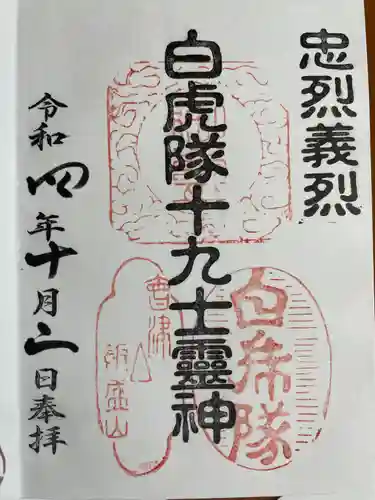 忠烈義烈
白虎隊十九士靈神
會津
飯盛山
白虎隊
令和四年十月二日奉拝